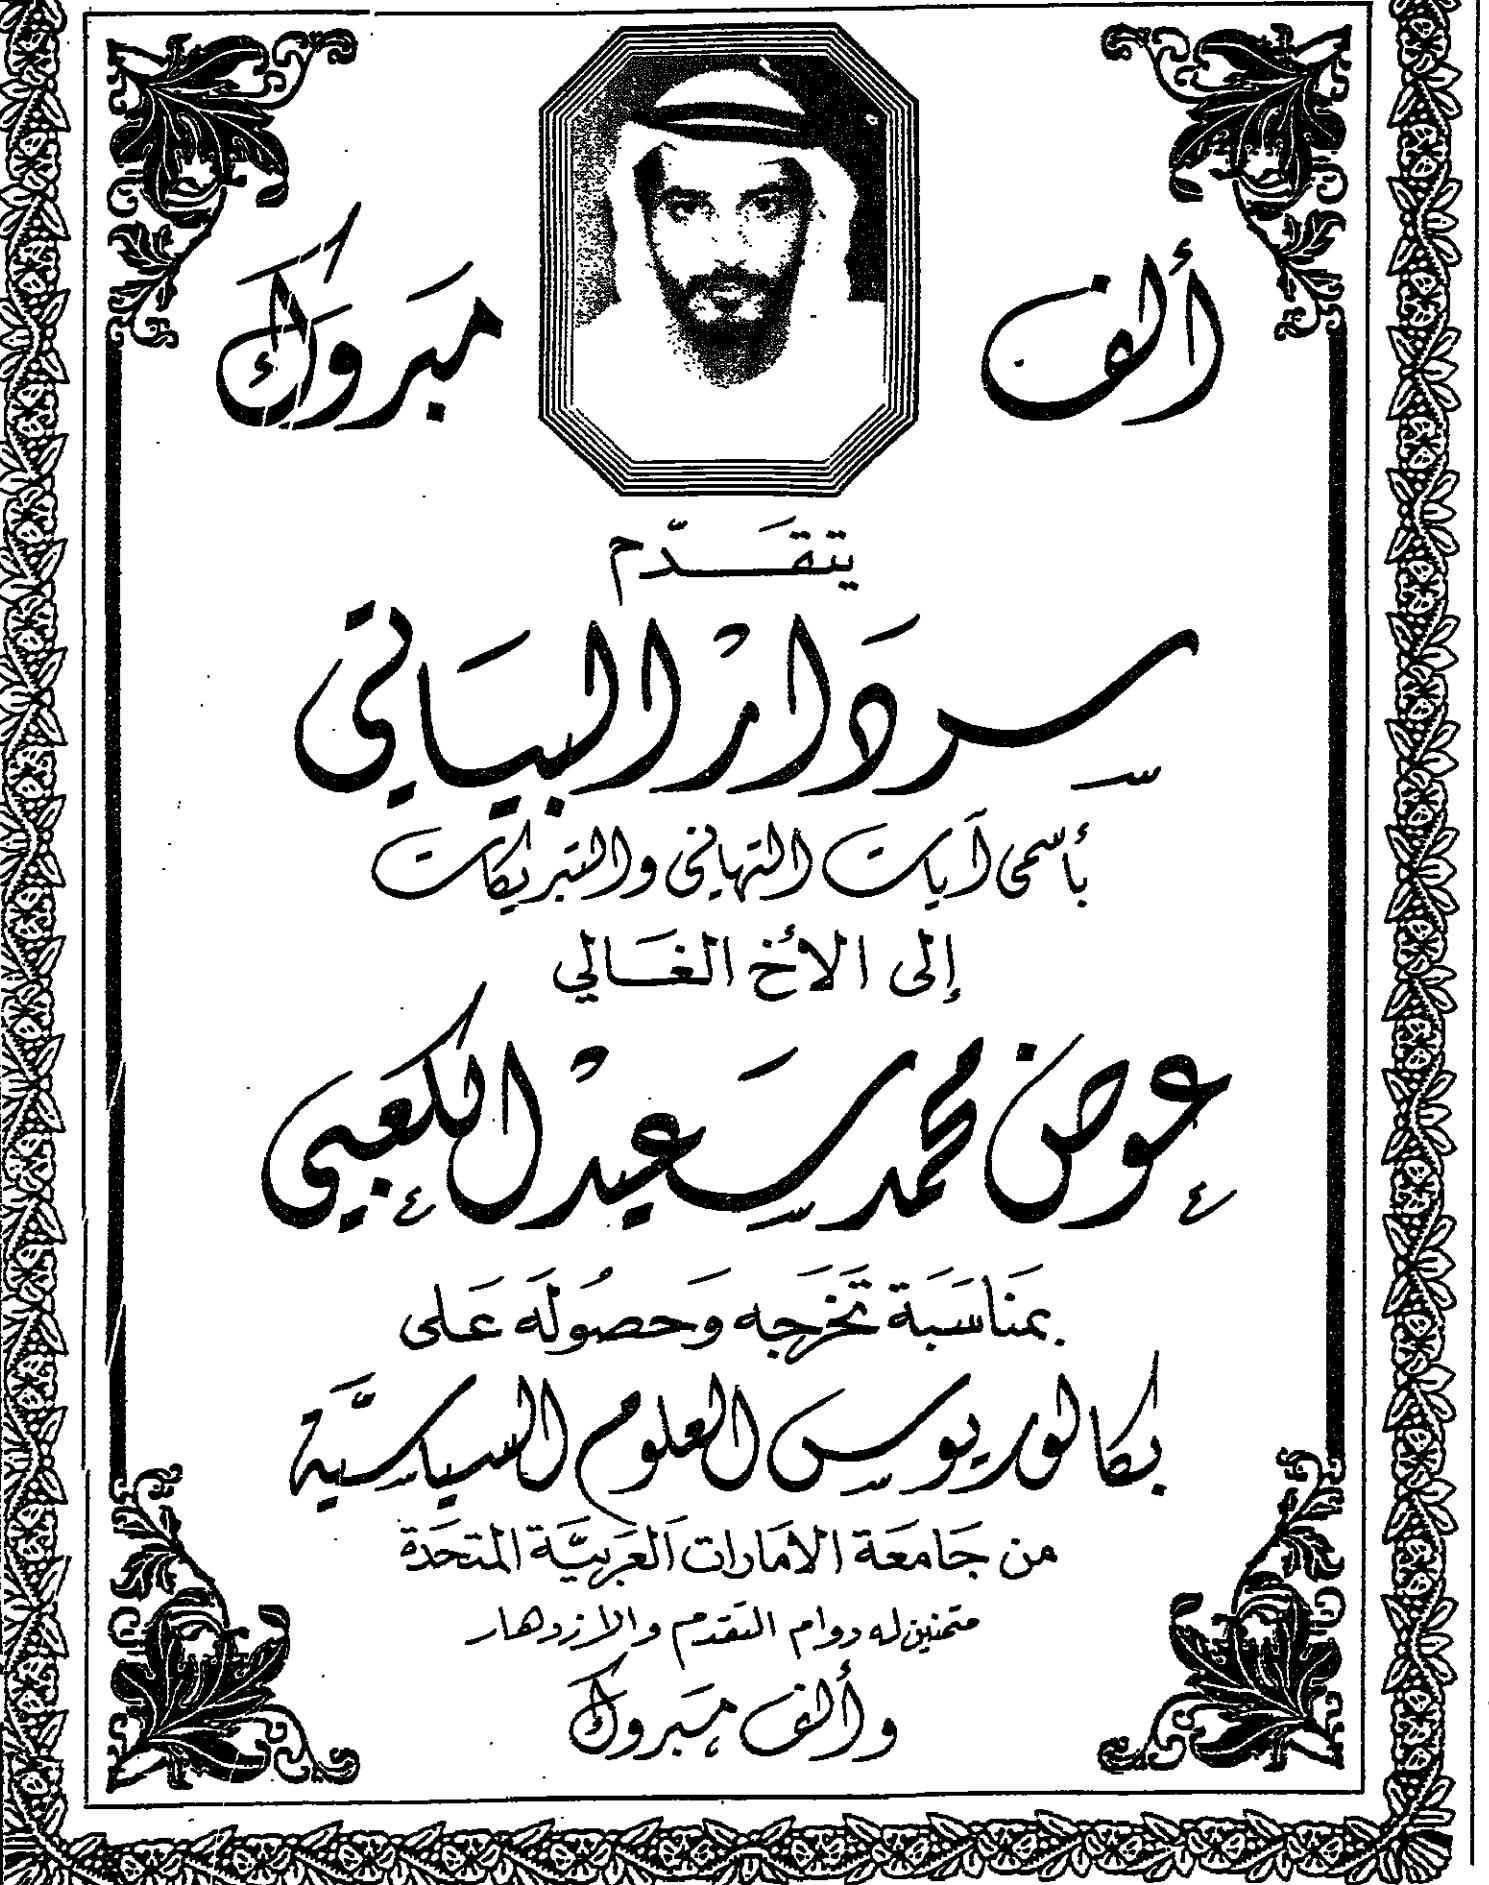 ألف مبروك
يتقدّم
سردار البياتي
بأسمى آيات التهاني والتبريكات
إلى الأخ الغالي
عوض محمد سعيد الكعبي
بمناسبة تخرجه وحصوله على
بكالوريوس العلوم السياسيّة
من جامعة الامارات العربيّة المتحدة
متمنين له دوام التقدم والازدهار
وألف مبروك